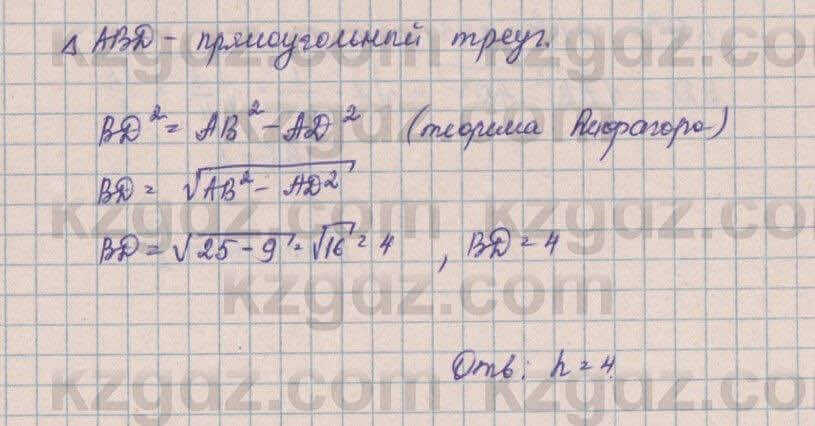 Δ ABD - прямоугольный треуг.
BD² = AB² - AD² (теорема Пифагора)
BD = √AB² - AD²
BD = √25 - 9 = √16 = 4 , BD = 4
Отв: h = 4
kzgdz.com
kzgdz.com
kzgdz.com
kzgdz.com
kzgdz.com
kzgdz.com
kzgdz.com